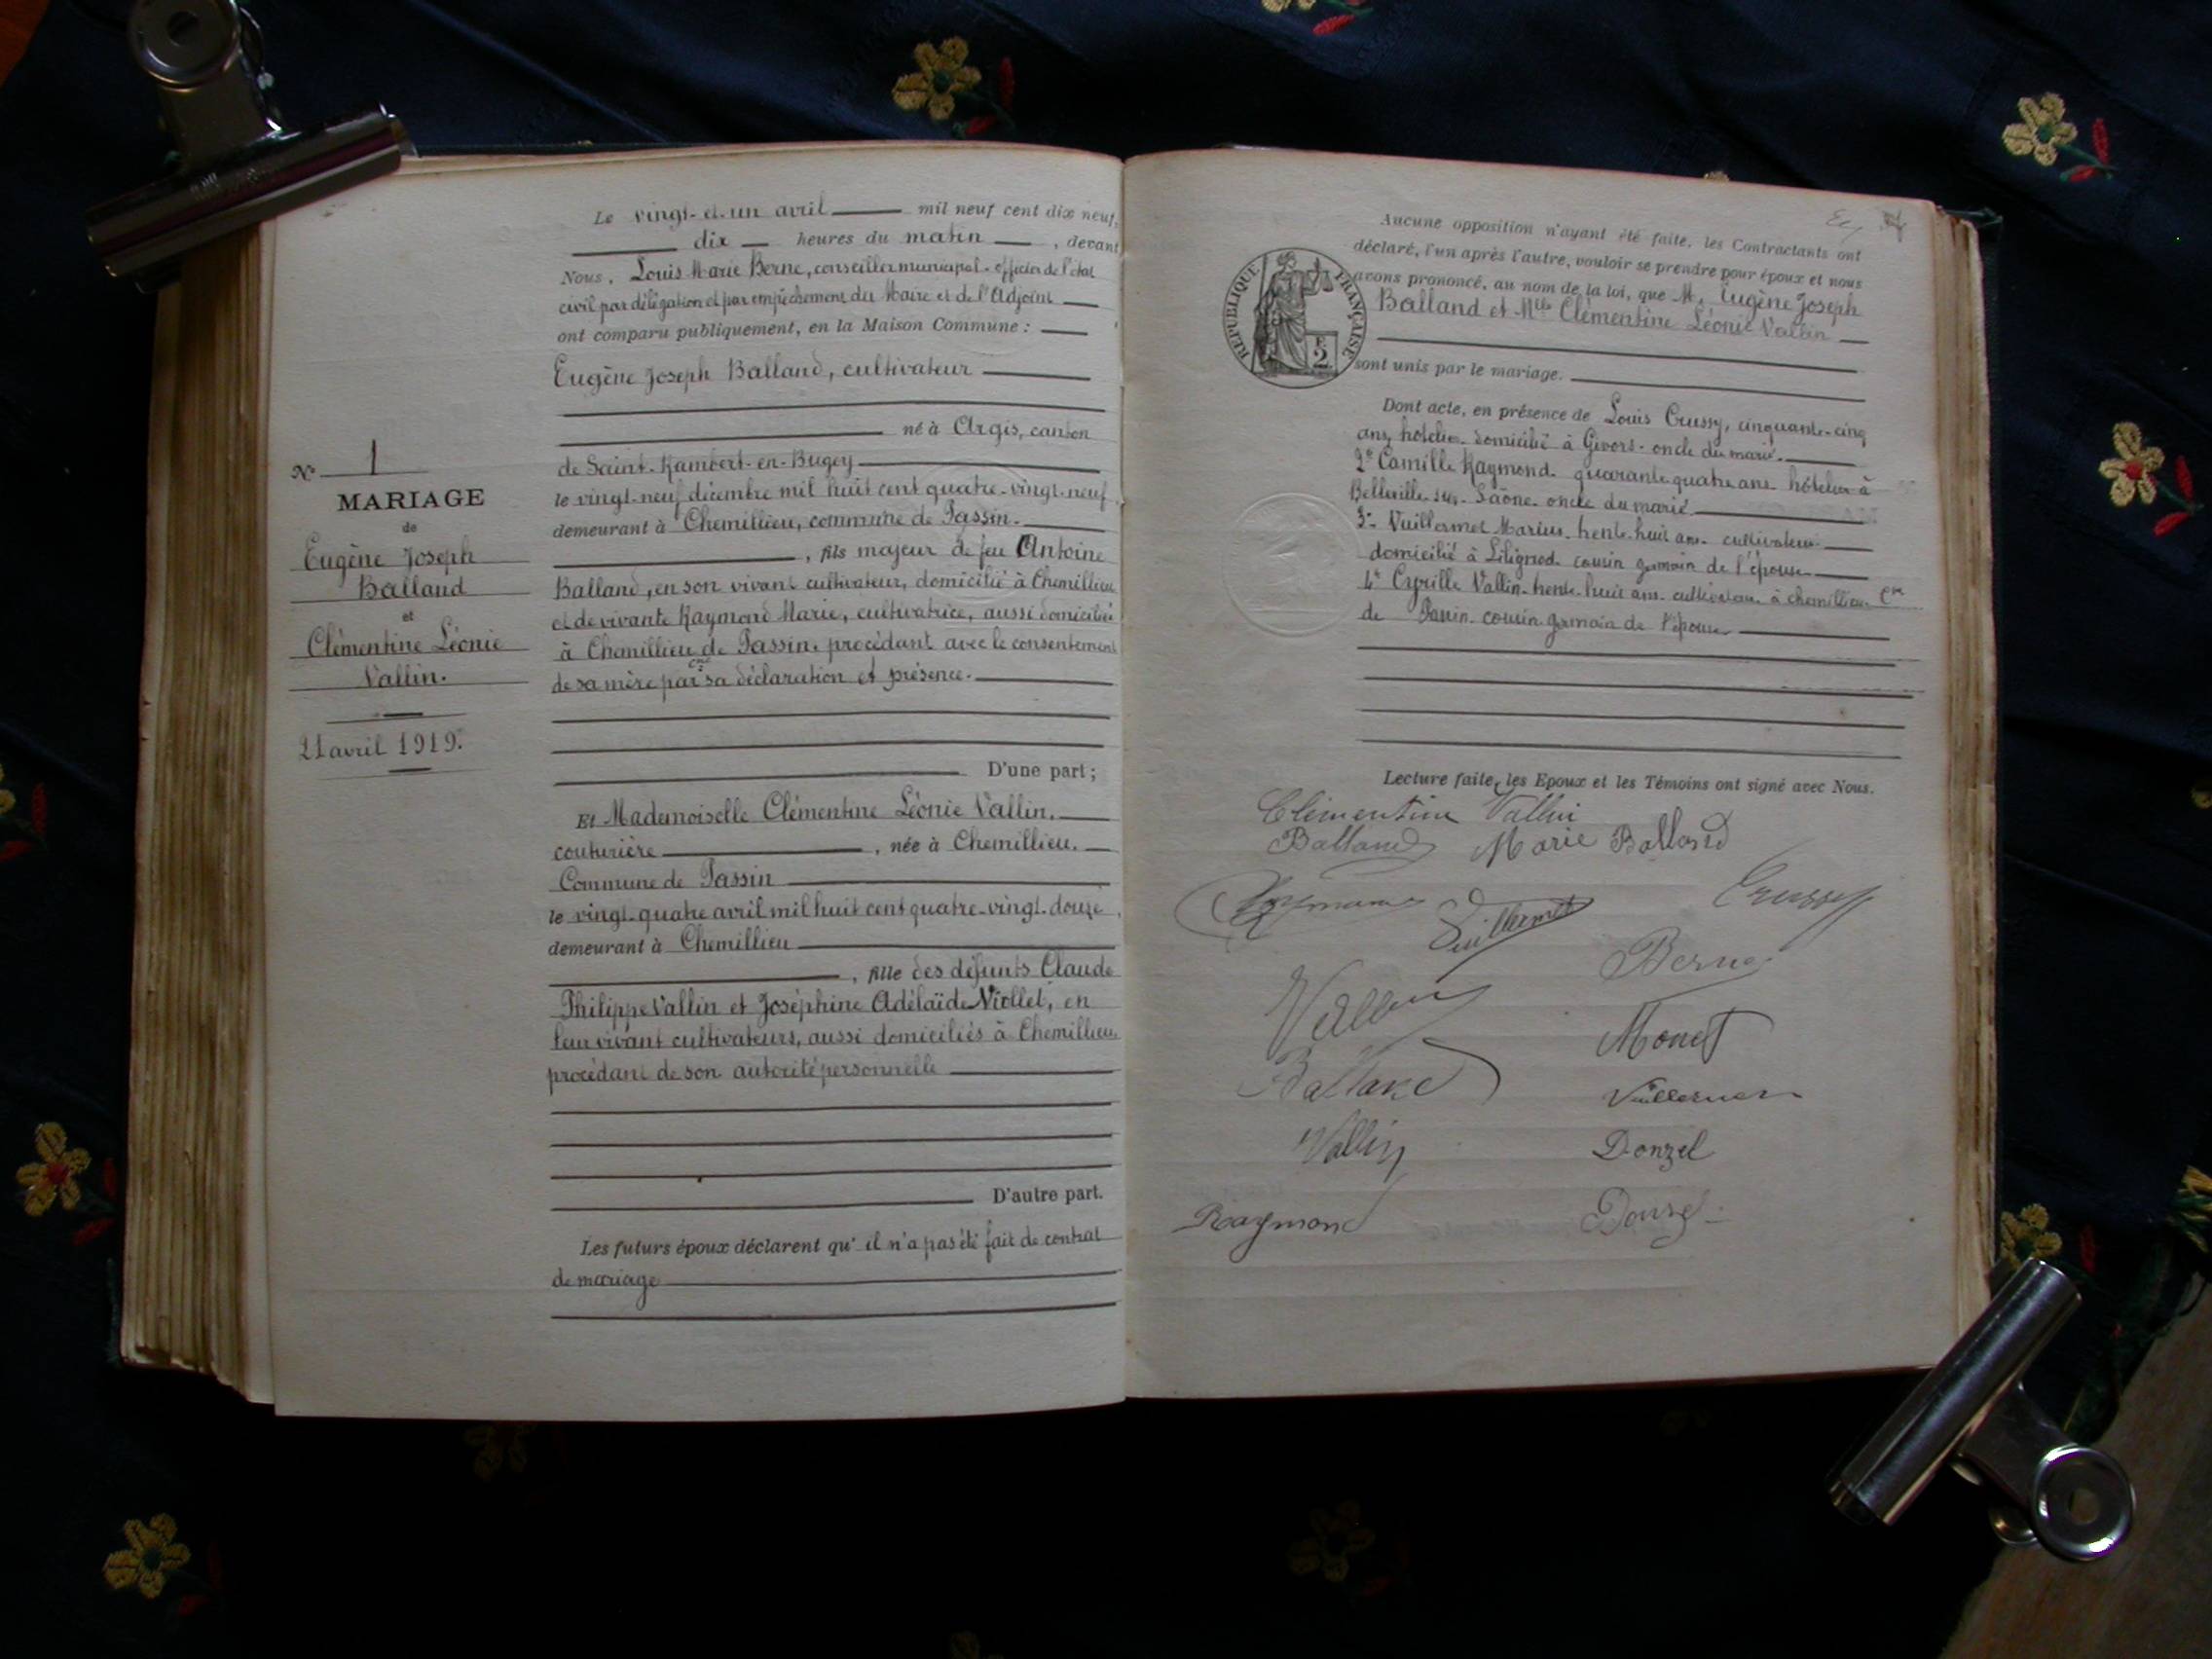 Nº 1
MARIAGE
de
Eugène Joseph
Balland
et
Clémentine Léonie
Vallin.
21 avril 1919.
Le vingt-et-un avril mil neuf cent dix neuf,
dix heures du matin, devant
Nous, Louis Marie Berne, conseiller municipal - officier de l'état
civil par délégation et par empêchement du Maire et de l'Adjoint
ont comparu publiquement, en la Maison Commune :
Eugène Joseph Balland, cultivateur
né à Argis, canton
de Saint-Rambert-en-Bugey
le vingt-neuf décembre mil huit cent quatre-vingt-neuf
demeurant à Chemillieu, commune de Passin.
, fils majeur de feu Antoine
Balland, en son vivant cultivateur, domicilié à Chemillieu
et de vivante Raymond Marie, cultivatrice, aussi domiciliée
à Chemillieu cne de Passin, procédant avec le consentement
de sa mère par sa déclaration et présence.
D'une part ;
Et Mademoiselle Clémentine Léonie Vallin,
couturière, née à Chemillieu,
Commune de Passin
le vingt-quatre avril mil huit cent quatre-vingt-douze,
demeurant à Chemillieu
, fille des défunts Claude
Philippe Vallin et Joséphine Adélaïde Niollet, en
leur vivant cultivateurs, aussi domiciliés à Chemillieu,
procédant de son autorité personnelle
D'autre part.
Les futurs époux déclarent qu'il n'a pas été fait de contrat
de mariage
Aucune opposition n'ayant été faite, les Contractants ont
déclaré, l'un après l'autre, vouloir se prendre pour époux et nous
avons prononcé, au nom de la loi, que M. Eugène Joseph
Balland et Mlle Clémentine Léonie Vallin
sont unis par le mariage.
REPUBLIQUE FRANÇAISE
2
Dont acte, en présence de Louis Crussy, cinquante-cinq
ans, hôtelier domicilié à Givors - oncle du marié.
2º Camille Raymond quarante quatre ans hôtelier à
Belleville-sur-Saône oncle du marié
3º Vuillermet Marius trente-huit ans cultivateur
domicilié à Lilignod cousin germain de l'épouse
4º Cyrille Vallin trente-huit ans cultivateur à Chemillieu Cne
de Passin cousin germain de l'épouse
Lecture faite, les Epoux et les Témoins ont signé avec Nous.
Clémentine Vallin
Balland Marie Balland
Vuillermet Crussy
Berne
Vallin
Monet
Balland
Vuillermet
Vallin
Donzel
Raymond
Donzel